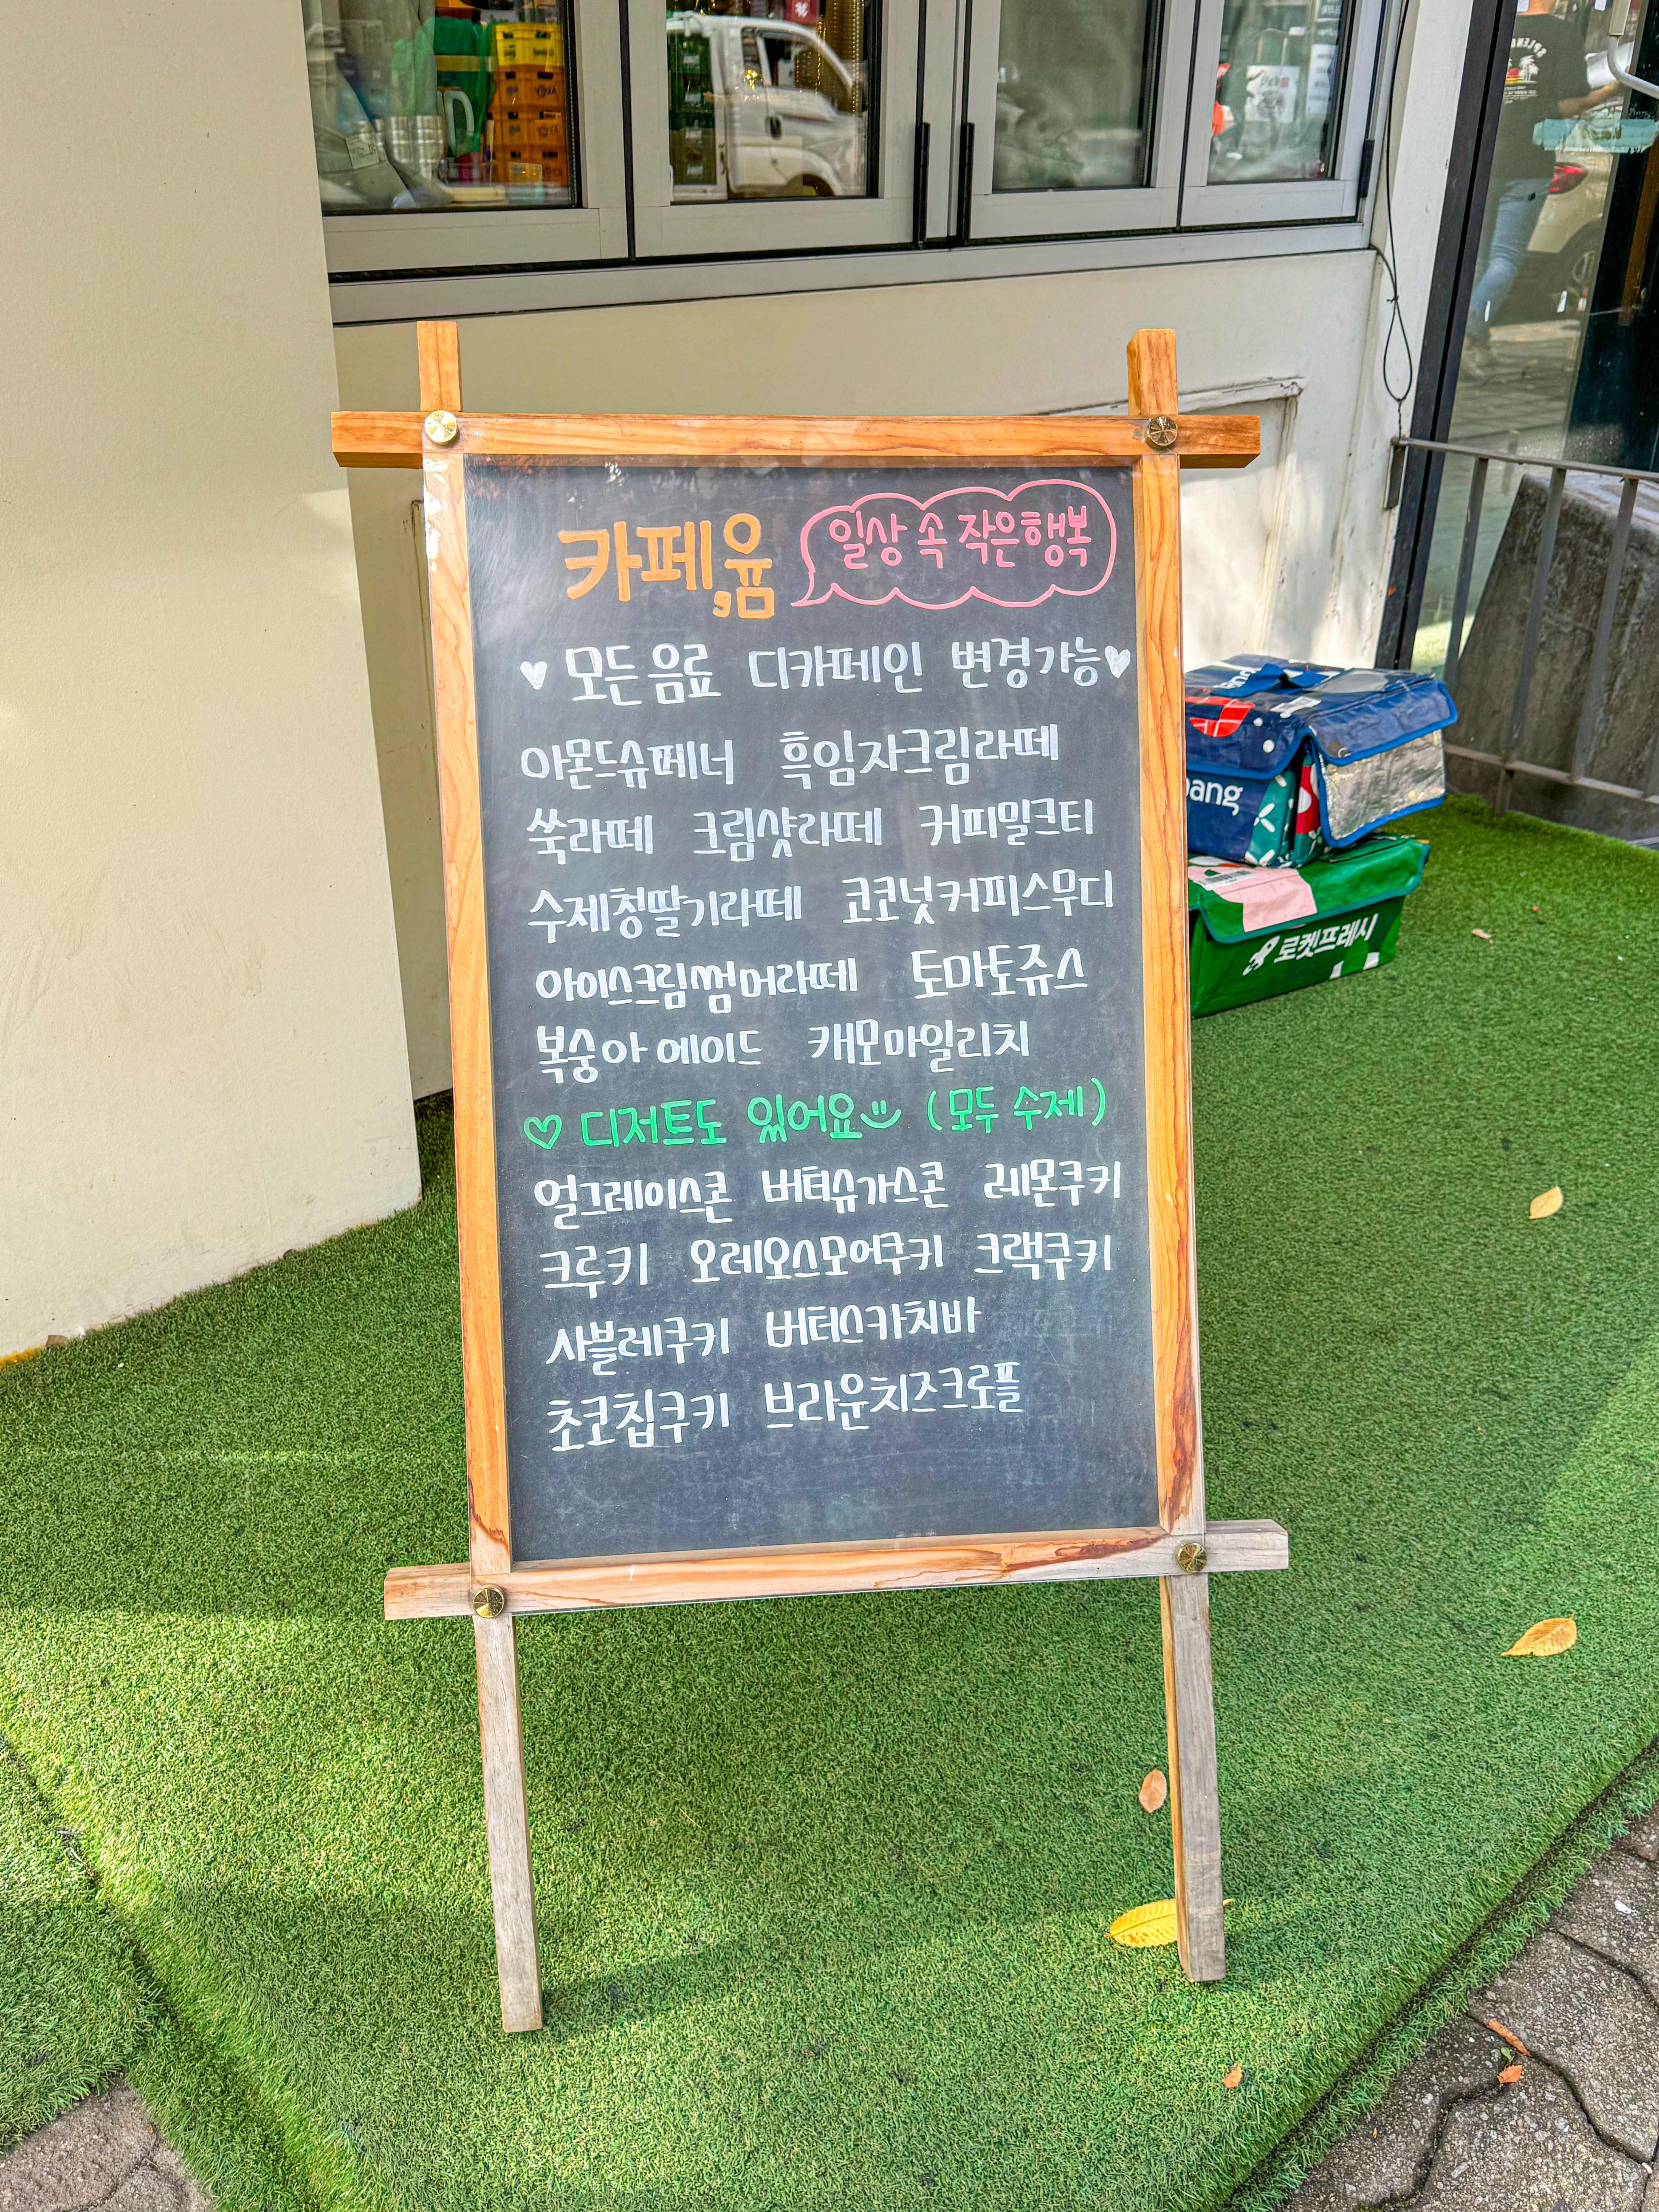 카페,윰 일상 속 작은행복
모든 음료 디카페인 변경가능
아몬드슈페너 흑임자크림라떼
쑥라떼 크림샷라떼 커피밀크티
수제청딸기라떼 코코넛커피스무디
아이스크림썸머라떼 토마토쥬스
복숭아 에이드 캐모마일리치
디저트도 있어요 (모두 수제)
얼그레이스콘 버터슈가스콘 레몬쿠키
크루키 오레오스모어쿠키 크랙쿠키
사블레쿠키 버터스카치바
초코칩쿠키 브라운치즈크로플
ang
로켓프레시